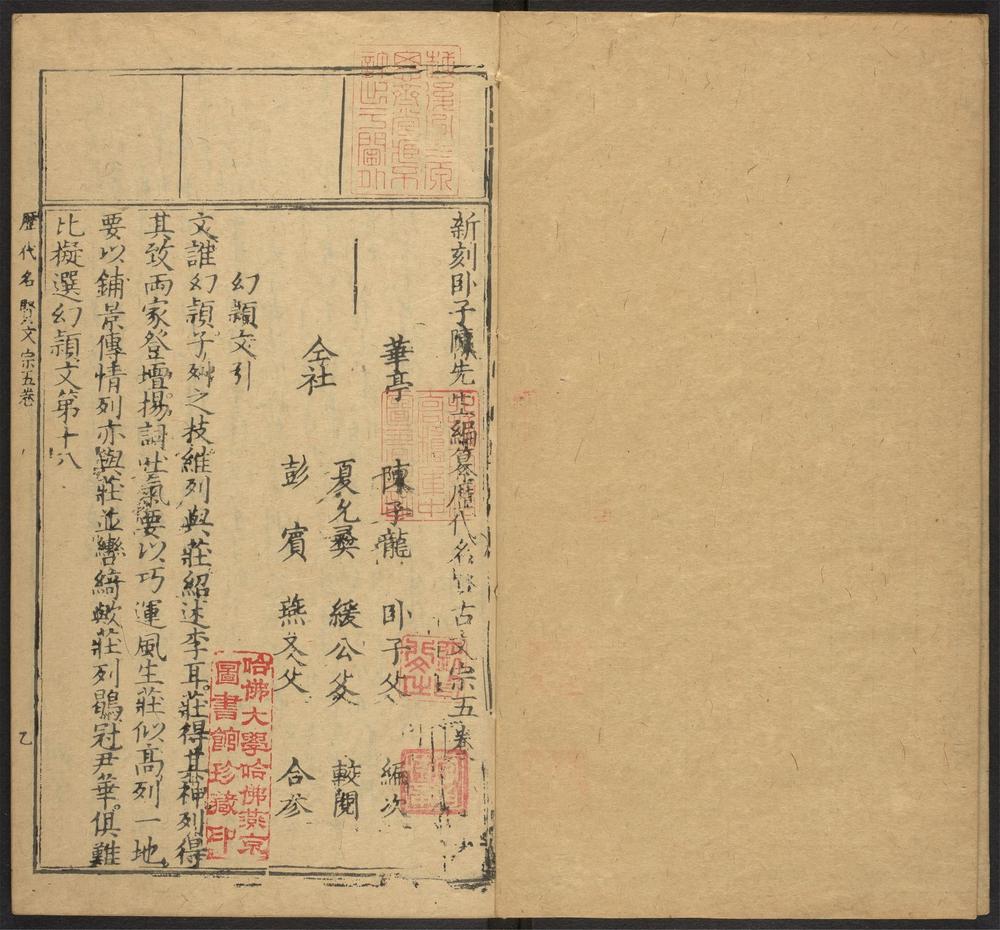 新刻卧子陳先生編纂歷代名賢古文宗五卷
華亭 陳子龍 卧子父 編次
夏允彝 緩公父 較閱
仝社
彭賓 燕又父 合參
幻穎文引
文誰幻穎子舛之技維列與莊紹述李耳。莊得其神列得
其致兩家登壇揚詞吐氣要以巧運風生莊似高列一地。
要以鋪景傳情列亦與莊並轡綺歟莊列鶡冠尹華。俱難
比擬選幻穎文第十八
歷代名賢文宗五卷
乙
哈佛大學哈佛燕京
圖書館珍藏印